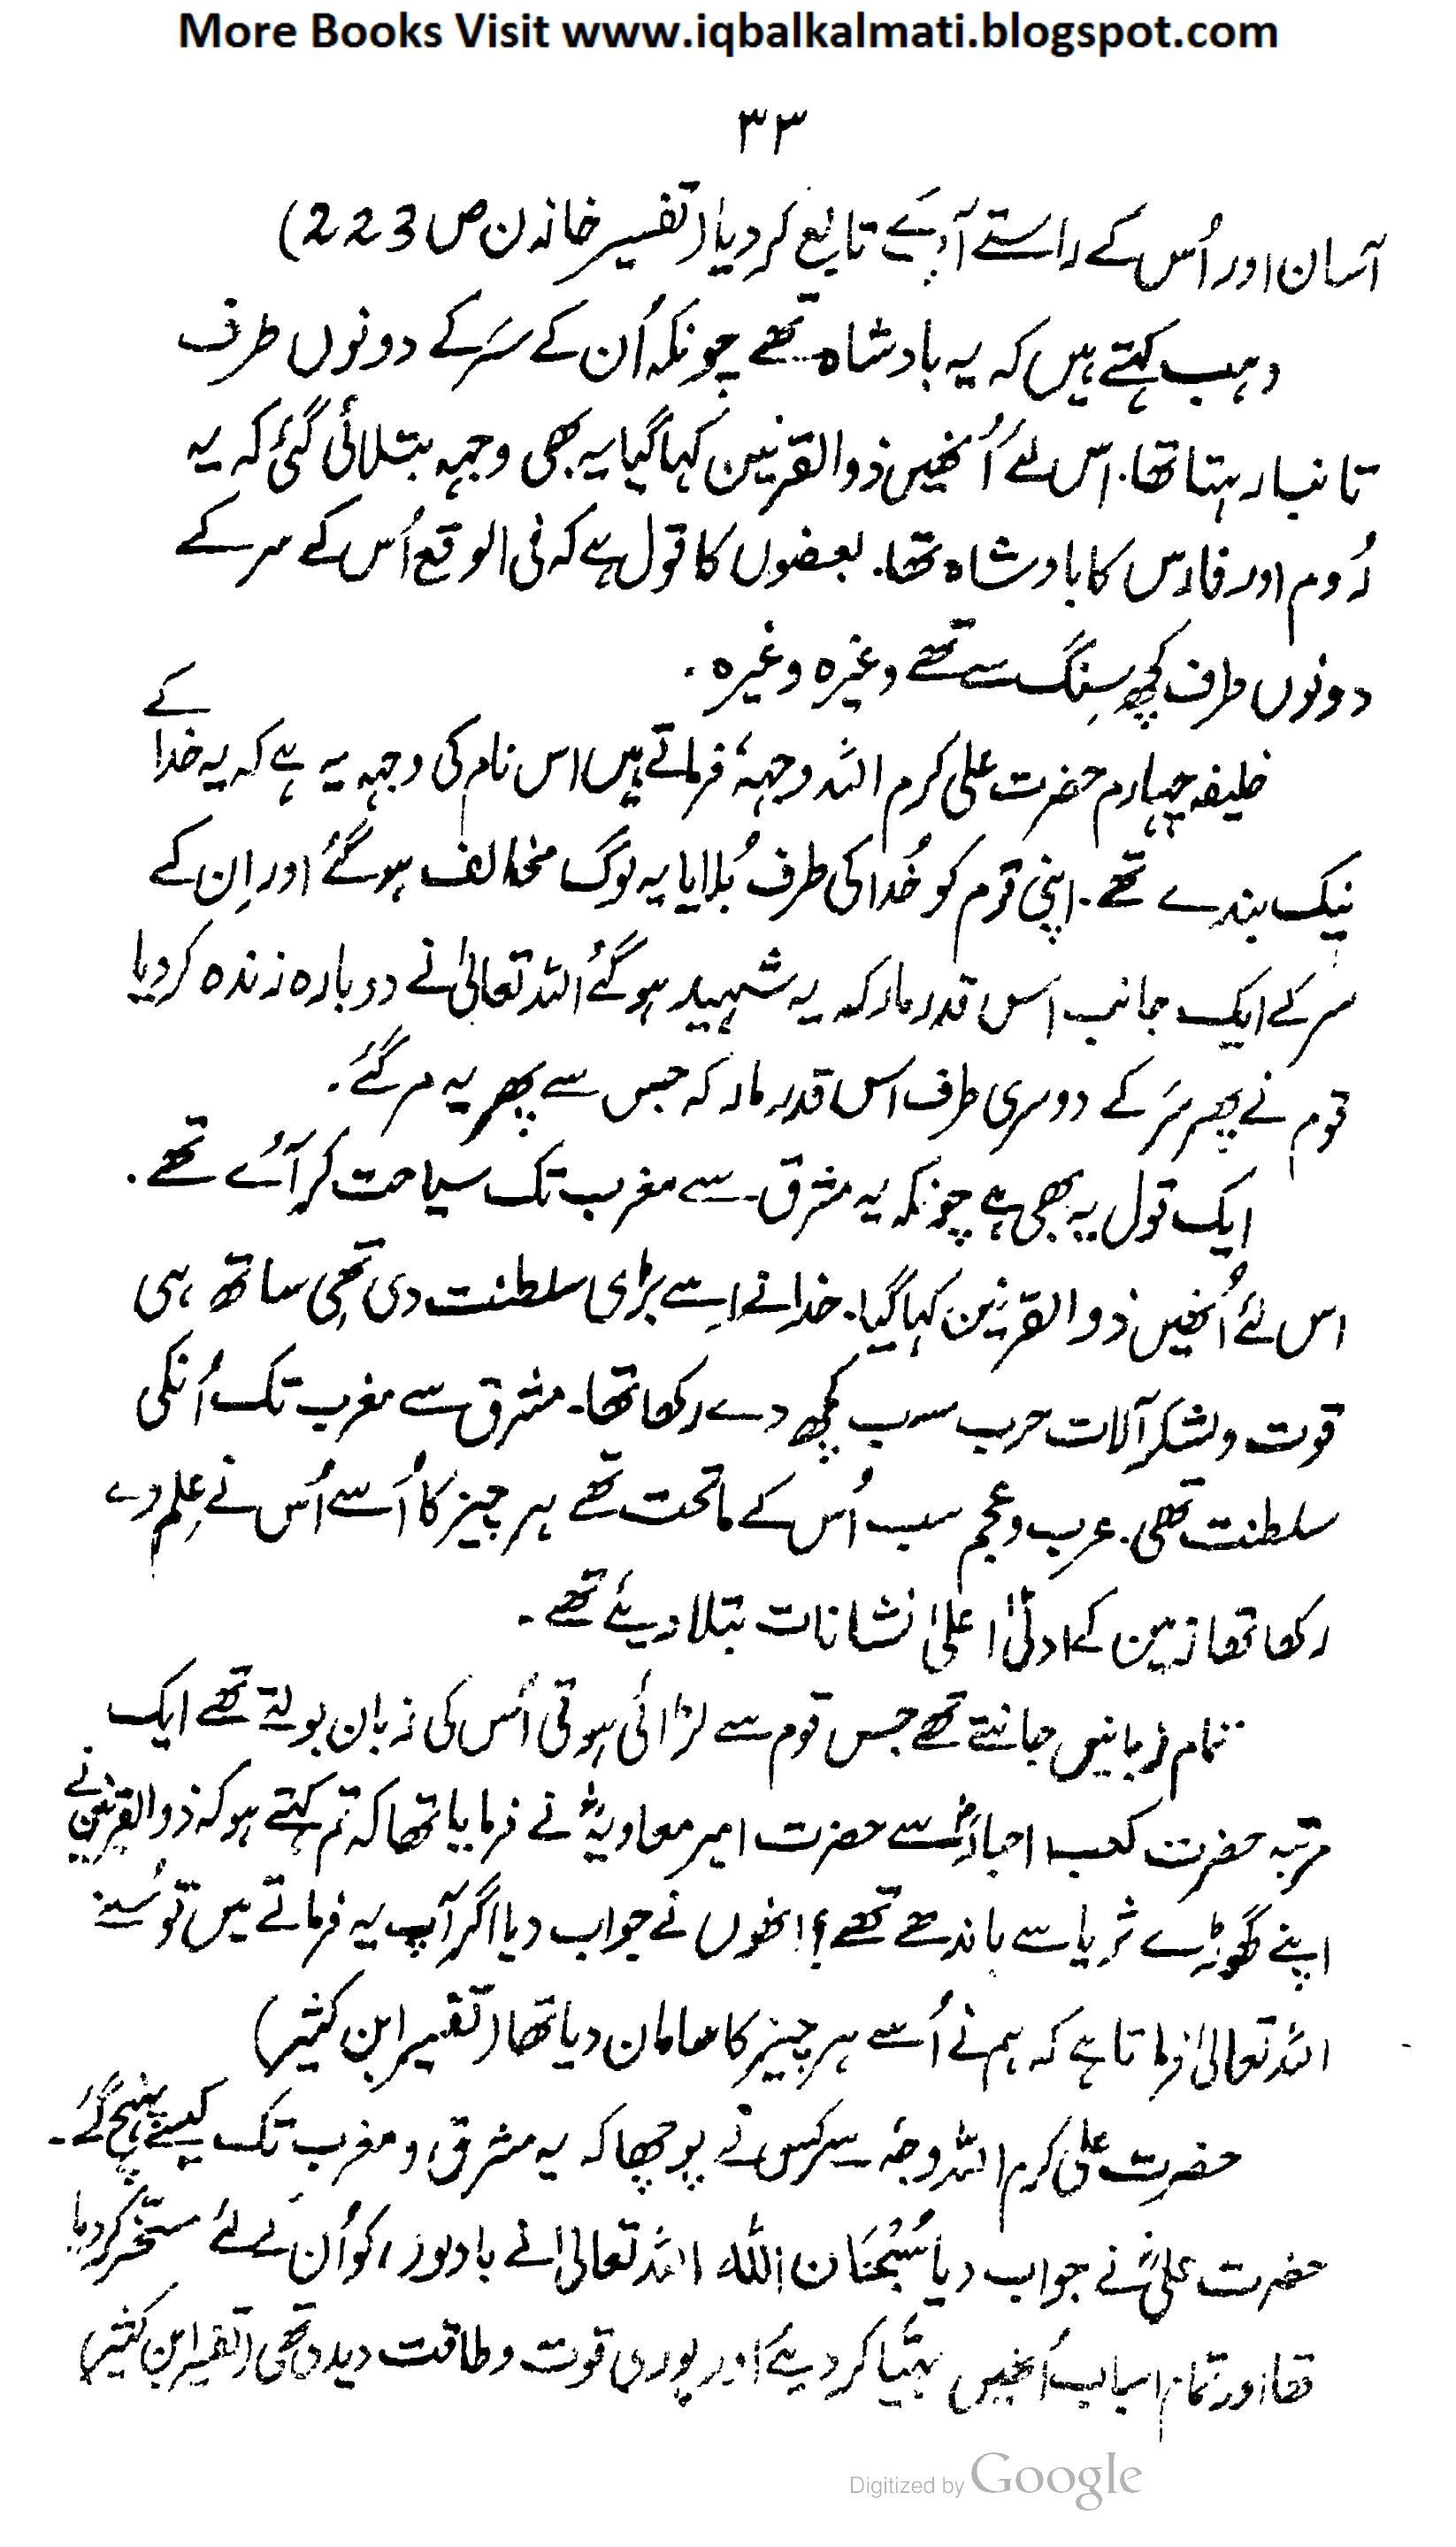 More Books Visit www.iqbalkalmati.blogspot.com
۳۳
آسان اور اُس کے راستے آپ کے تابع کر دیا (تفسیر خازن ص 223)
وہب کہتے ہیں کہ یہ بادشاہ تھے چونکہ اُن کے سَر کے دونوں طرف
تانبا رہتا تھا۔ اس لئے اُنھیں ذوالقرنین کہا گیا یہ بھی وجہہ بتلائی گئی کہ یہ
رُوم اور فارس کا بادشاہ تھا۔ بعضوں کا قول ہے کہ فی الوقع اُس کے سر کے
دونوں طرف کچھ سِنگ سے تھے وغیرہ وغیرہ۔
خلیفہ چہارم حضرت علی کرم اللہ وجہہٗ فرماتے ہیں اس نام کی وجہہ یہ ہے کہ یہ خدا کے
نیک بندے تھے۔ اپنی قوم کو خُدا کی طرف بُلایا یہ لوگ مخالف ہو گئے اور اِن کے
سر کے ایک جانب اس قدر مار کہ یہ شہید ہو گئے اللہ تعالیٰ نے دوبارہ زندہ کر دیا
قوم نے پھر سَر کے دوسری طرف اس قدر مار کہ جس سے پھر یہ مر گئے۔
ایک قول یہ بھی ہے چونکہ یہ مشرق سے مغرب تک سیاحت کر آئے تھے۔
اس لئے اُنھیں ذوالقرنین کہا گیا۔ خدا نے اِسے بڑی سلطنت دی تھی ساتھ ہی
قوت و لشکر آلات حرب سب کچھ دے رکھا تھا۔ مشرق سے مغرب تک اُنکی
سلطنت تھی۔ عرب و عجم سب اُس کے ماتحت تھے ہر چیز کا اُسے اُس نے عِلم دے
رکھا تھا زمین کے ادنیٰ اعلیٰ نشانات بتلا دیئے تھے۔
تمام زبانیں جانتے تھے جس قوم سے لڑائی ہوتی اُس کی زبان بولتے تھے ایک
مرتبہ حضرت کعب احبارؓ سے حضرت امیر معاویہؓ نے فرمایا تھا کہ تم کہتے ہو کہ ذوالقرنین نے
اپنے گھوڑے ثریا سے باندھے تھے؟ انھوں نے جواب دیا اگر آپ یہ فرماتے ہیں تو سُنئے
اللہ تعالیٰ فرماتا ہے کہ ہم نے اُسے ہر چیز کا سامان دیا تھا (تفسیر ابن کثیر)
حضرت علی کرم اللہ وجہٗ سے کسی نے پوچھا کہ یہ مشرق و مغرب تک کیسے پہنچ گئے۔
حضرت علیؓ نے جواب دیا سُبْحَان اللّٰہ اللہ تعالیٰ نے بادلوں کو اُن کے لئے مسخّر کر دیا
تھا اور تمام اسباب اُنھیں مہیّا کر دیئے اور پوری قوت و طاقت دیدی تھی (تفسیر ابن کثیر)
Digitized by Google